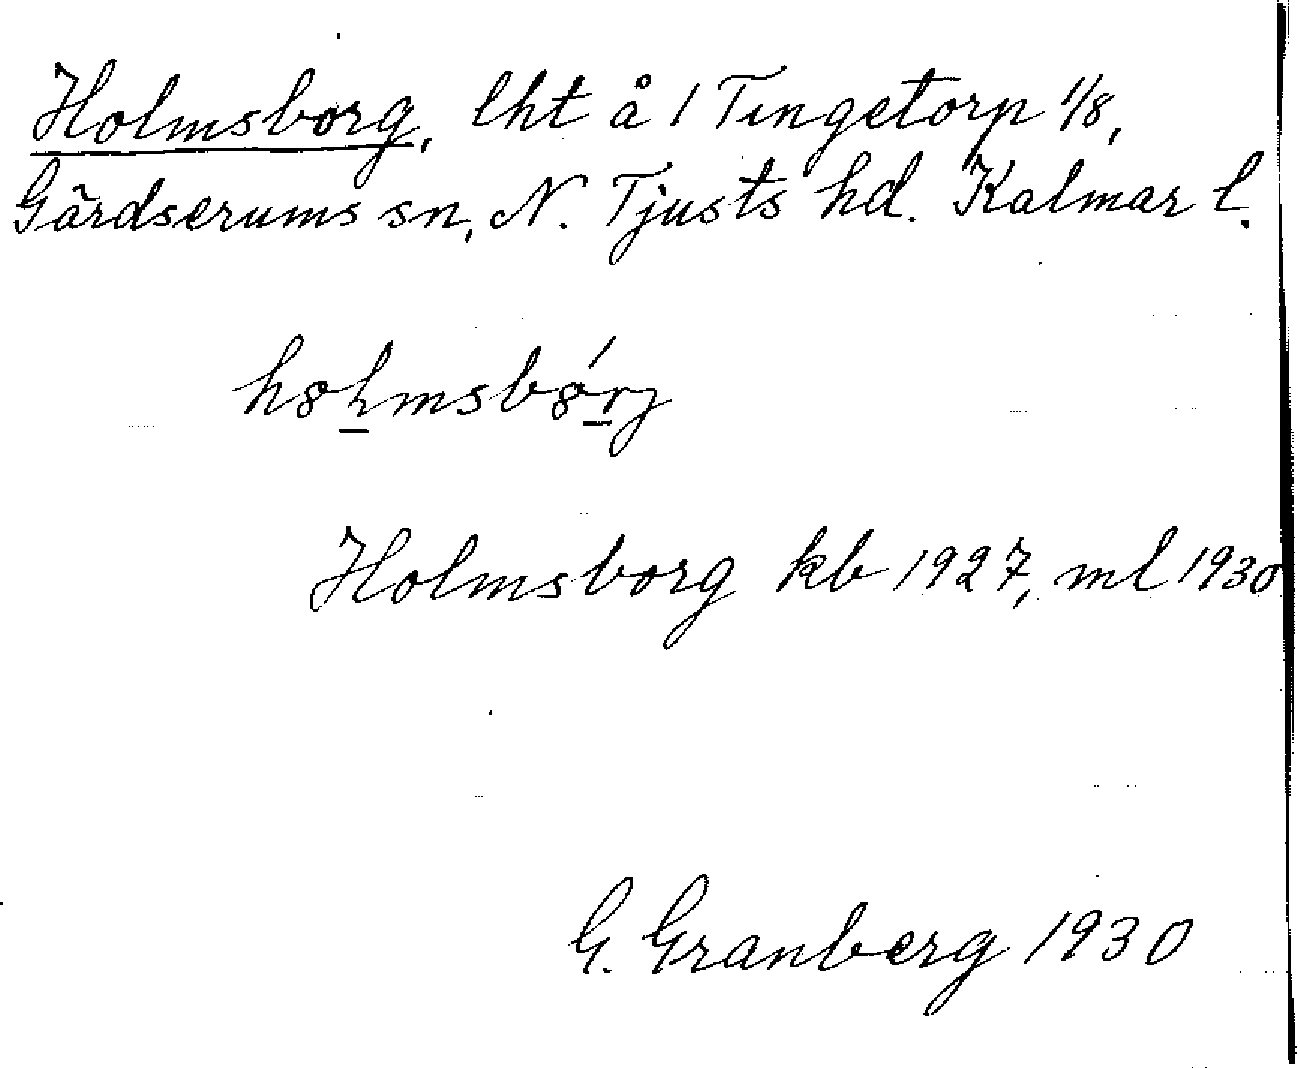 Holmsborg, lht å 1 Tingetorp 1/8,
Gärdserums sn, N. Tjusts hd. Kalmar l.
Holmsborg kb 1927, ml 1930
G. Granberg 1930